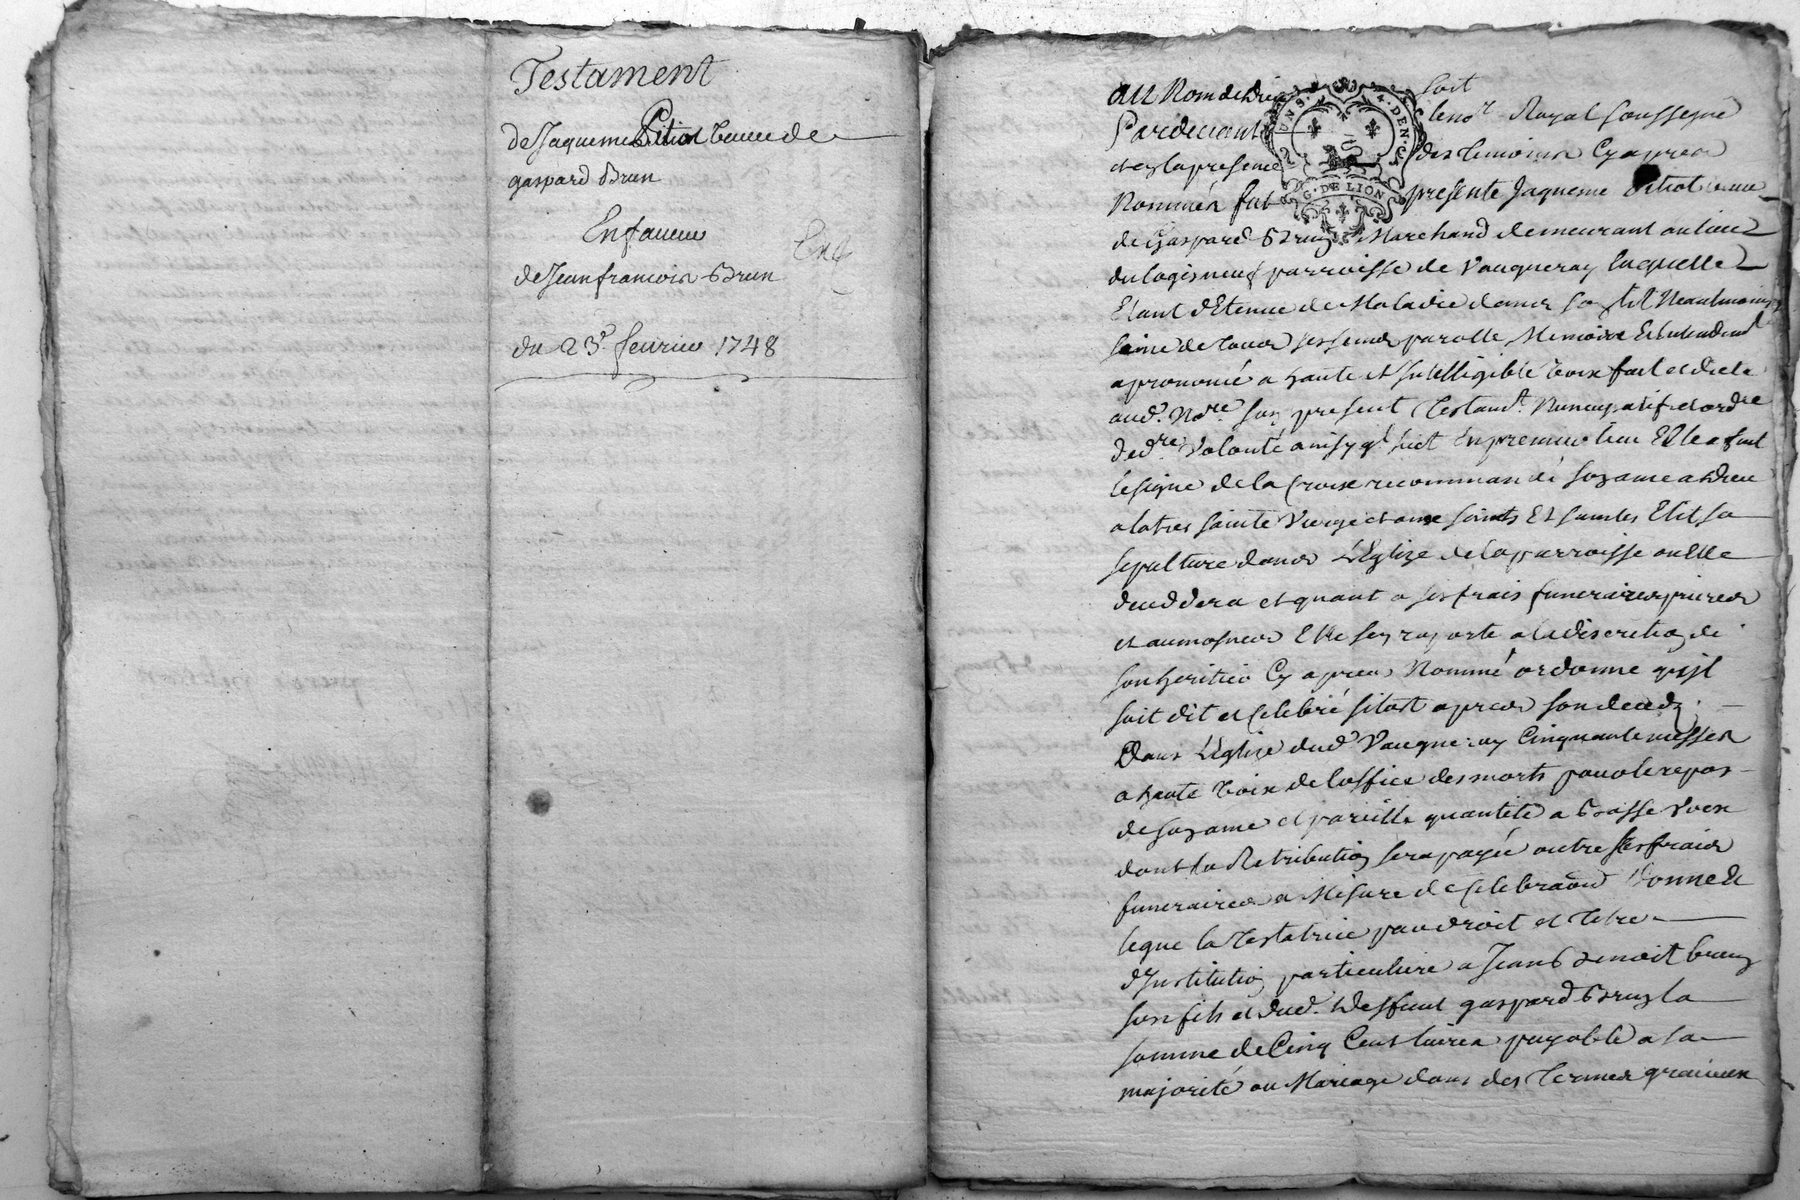 Testament
de Jaqueme Pitiot veuve de
gaspard Brun
En faveur
de Jean francois Brun
du 23e. fevrier 1748
Enf
au Nom de Dieu soit
Pardevant le nore. Royal soussigné
et en la presence des temoins cy apres
Nommés fut presente Jaqueme Pitiot veuve
de Gaspard Brun Marchand demeurant au lieu
du logis neuf parroisse de Vaugneray laquelle
Etant detenue de Maladie dans son lit Neantmoins
saine de tous ses sens parolle Memoire Et Entendemt
a prononcé a haute et Intelligible voix fait et dicté
aud. Nore son present Testamt. Nuncupatif et ordre
de dre. Volonté ainsy ql. suit En premier lieu Elle a fait
le signe de la Croix recommandé son ame a Dieu
a la tres sainte Vierge et aux saints Et saintes Elit sa
sepulture dans L'Eglize de la parroisse ou Elle
deceddera et quant a ses frais funeraires prieres
et aumosnes Elle s'en raporte a la discretion de
son heritier Cy apres Nommé ordonne qu'il
soit dit et celebré sitost apres son decedz
Dans L'Eglize dud. Vaugneray Cinquante messes
a haute voix de l'office des morts pour le repos
de son ame et pareille quantité a Basse voix
dont la Retribution sera payée outre les frais
funeraires a Mesure de celebraon Donne Et
legue la Testatrice par droit et titre
d'Institution particuliere a Jean Benoit brun
son fils et dud. Deffunt gaspard Brun la
somme de Cinq Cent livres payable a sa
majorité ou Mariage dans des termes gracieux
UNS. 4. DEN.
G. DE LION